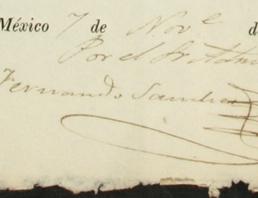 México 7 de Nov.e d
Por el Sr Adm
Fernando Sanchez